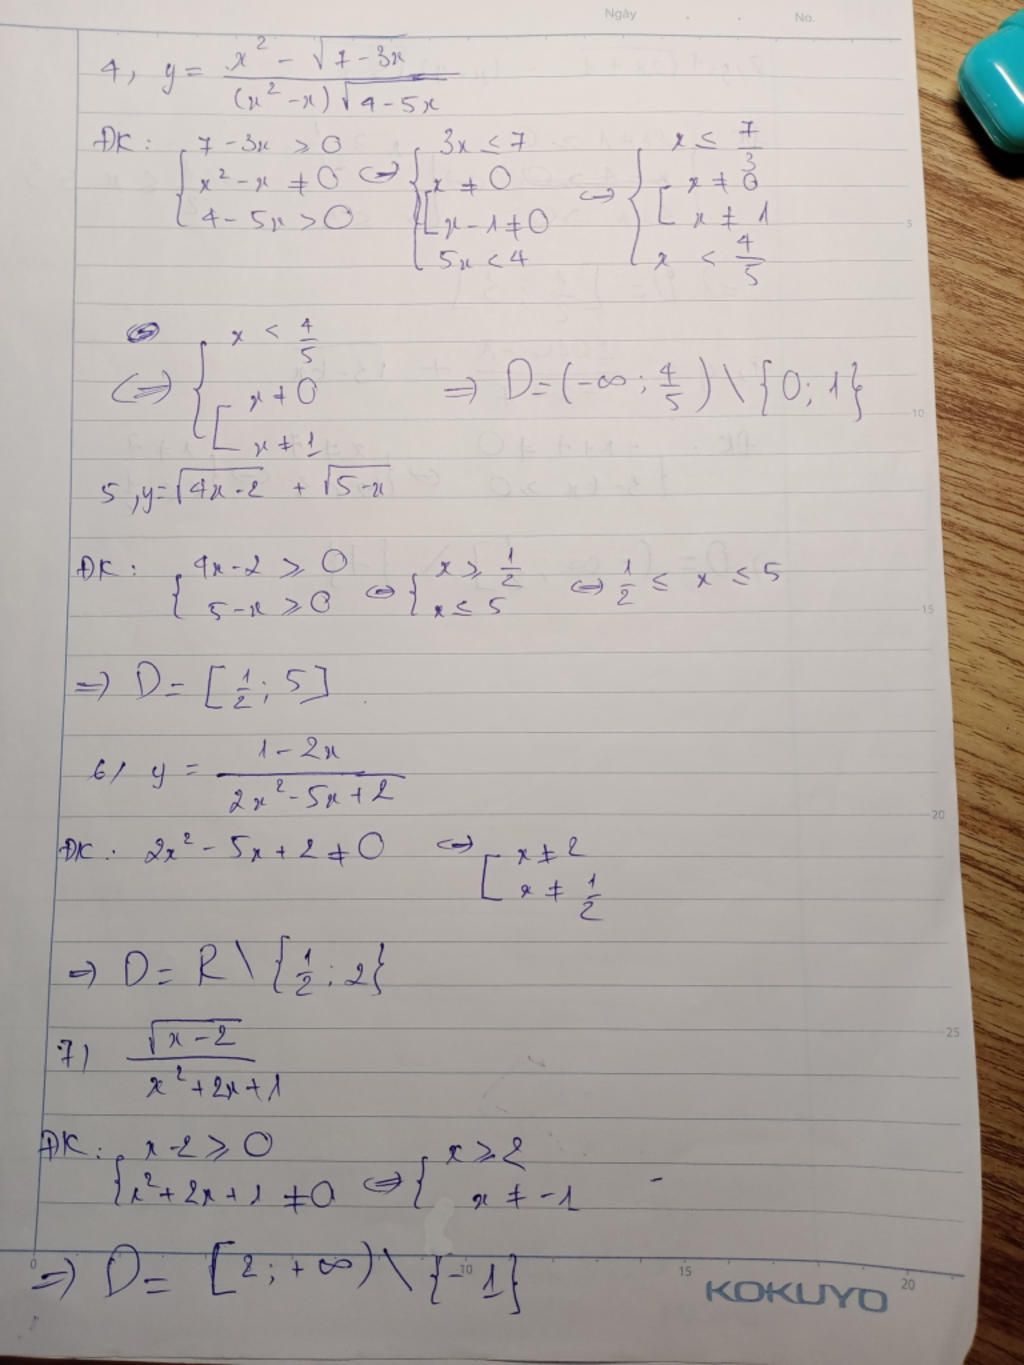 Ngày . . No.
4, y = \frac{x² - √(7-3x)}{(x² - x)√(4-5x)}
ĐK: { 7-3x ≥ 0 ; x² - x ≠ 0 ; 4-5x > 0 ⇔ { 3x ≤ 7 ; [ x ≠ 0 ; x-1 ≠ 0 ; 5x < 4 ⇔ { x ≤ \frac{7}{3} ; [ x ≠ 0 ; x ≠ 1 ; x < \frac{4}{5}
⇔ { x < \frac{4}{5} ; [ x ≠ 0 ; x ≠ 1 ⇒ D = (-∞; \frac{4}{5}) \ {0; 1}
5, y = √(4x-2) + √(5-x)
ĐK: { 4x-2 ≥ 0 ; 5-x ≥ 0 ⇔ { x ≥ \frac{1}{2} ; x ≤ 5 ⇔ \frac{1}{2} ≤ x ≤ 5
⇒ D = [\frac{1}{2}; 5]
6) y = \frac{1-2x}{2x² - 5x + 2}
ĐK: 2x² - 5x + 2 ≠ 0 ⇔ [ x ≠ 2 ; x ≠ \frac{1}{2}
⇒ D = R \ {\frac{1}{2}; 2}
7) \frac{√(x-2)}{x² + 2x + 1}
ĐK: { x-2 ≥ 0 ; x² + 2x + 1 ≠ 0 ⇔ { x ≥ 2 ; x ≠ -1
⇒ D = [2; +∞) \ {-1}
5
10
15
20
25
0 10 15 20
KOKUYO